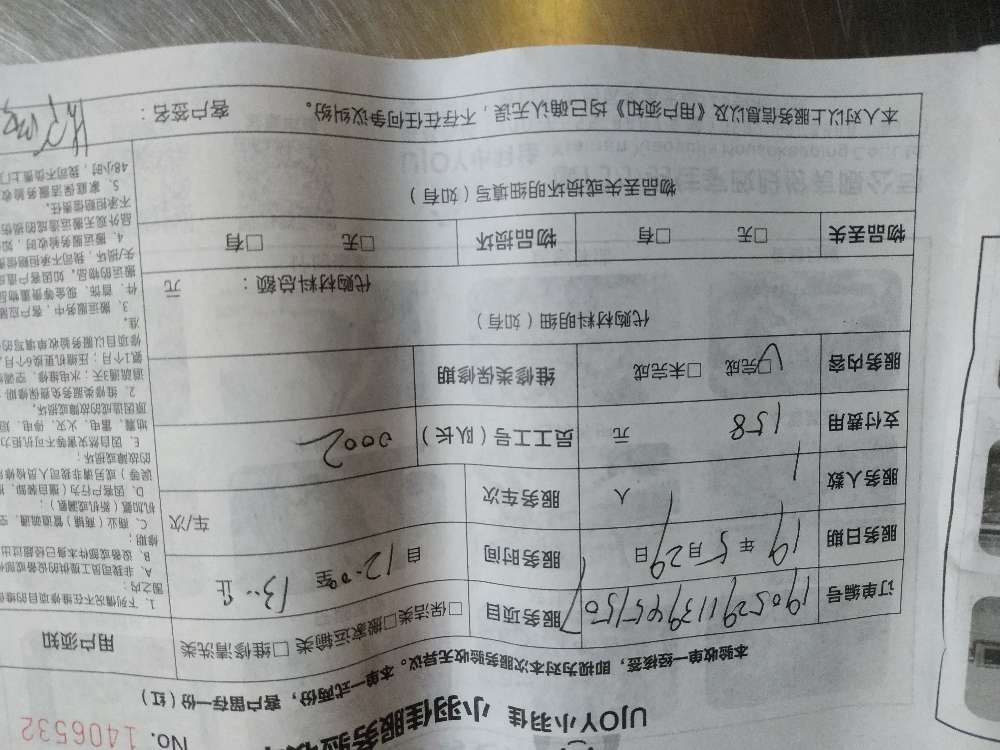 UJOY小羽佳 小羽佳服务验收单 No. 1406532
本验收单一经接签，即视为对本次服务验收无异议。本单一式两份，客户留存一份（红）
订单编号 服务项目 □保洁类□搬家运输类 □维修清洗类 用户须知
服务日期 19 年 5 月 29 日 服务时间 自 12:00 至 13:00 止
服务人数 1 人 服务车次 车/次
支付费用 158 元 员工工号（队长） 0002
服务内容 □完成 □未完成 维修类保修期
代购材料明细（如有）
代购材料总额： 元
物品丢失 □无 □有 物品损坏 □无 □有
物品丢失或损坏明细填写（如有）
本人对以上服务信息以及《用户须知》均已确认无误，不存在任何争议纠纷。 客户签名：
1、下列情况不在维修项目的保修
围之内：
A、非我司员工提供的设备或部件
B、设备或部件本身已经超过
修期；
C、商业（商铺）管道疏通、空
机加氟（拆机或漏氟）；
D、因客户行为（擅自
误等）或另请非我司人员检修
的故障或损坏；
E、因自然灾害等不可抗力
地震、雷电、火灾、停电、
原因造成的故障或损坏。
2、维修类服务免费保修期：
道疏通3天；水电维修、空调
氟1个月；压缩机更换6个月，
修项目以服务验收单填写的
准。
3、搬运服务中，客户应
件、首饰、现金等贵重物品
搬运的物品。如因客户
失/损坏，我司不承担赔偿责
4、搬运服务验收时，如
品外观无搬运造成的损伤
不承担赔偿责任。
5、家庭保洁服务验收
48小时，我司不负责上门